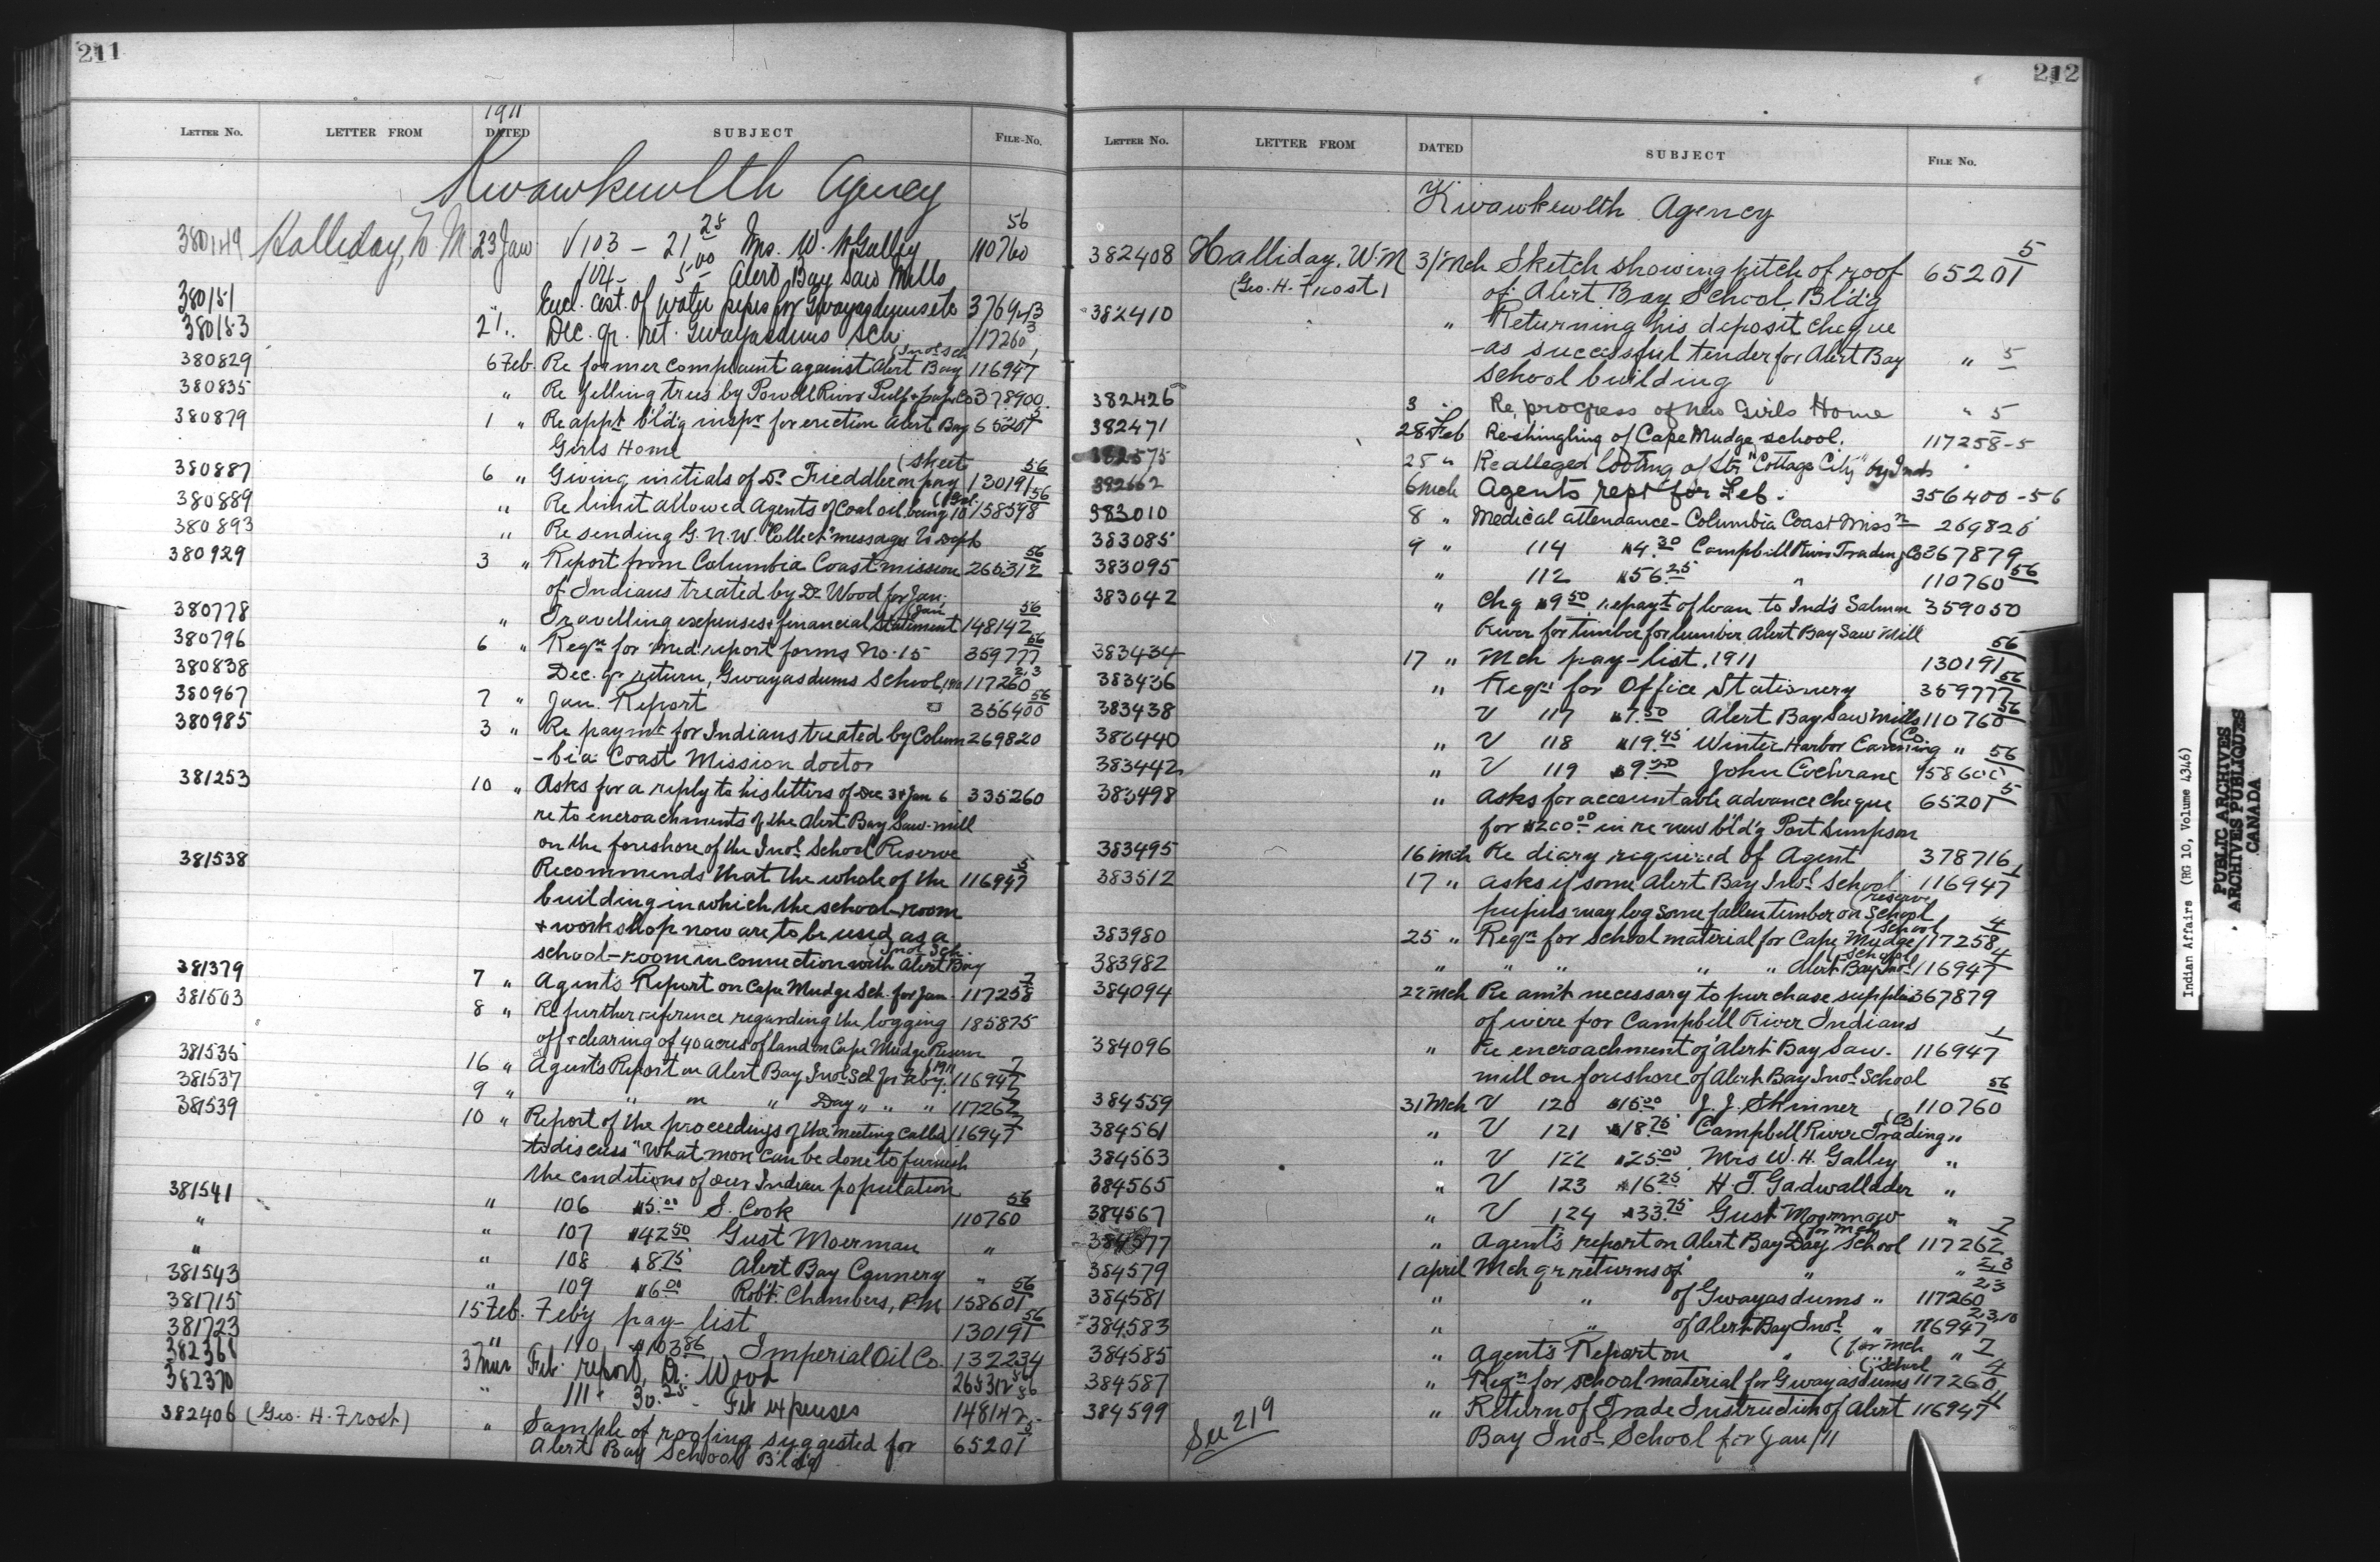 211
1911
LETTER NO. LETTER FROM DATED SUBJECT FILE-NO.
Kwawkewlth Agency
380149 Halliday, W M 23 Jan V 103 - 21 25 Mrs. W. H Galley 110760 56
104 - 5 00 Alert Bay Saw Mills
380151 " Encl. cost of water pipes for Gwayasdums etc
380153 21 " Dec. qr. ret. Gwayasdums Sch. 117260
380829 6 Feb. Re former complaint against Alert Bay (Indl Sch 116947
380835 " Re felling trees by Powell River Pulp & paper Co 378900
380879 1 " Re appt bldg inspr for erection Alert Bay 65201 5
Girls Home
380887 6 " Giving initials of Dr. on pay (sheet 130191 56
380889 " Re limit allowed Agents of Coal oil being 10 158598 56
380893 " Re sending G. N. W. "Collect" messages to Dept
380929 3 " Report from Columbia Coast mission 265312 56
of Indians treated by Dr Wood for Jan.
380778 " Travelling expenses & financial statement (Jan 148142 56
380796 6 " Reqn for med. report forms No. 15 359777 56
380838 Dec. qr return, Gwayasdums School, 117260 2,3
380967 7 " Jan. Report 356400 56
380985 3 " Re paymt for Indians treated by Colum 269820
-bia Coast Mission doctor
381253 10 " Asks for a reply to his letters of Dec 3 & Jan 6 335260
re to encroachments of the Alert Bay Saw-mill
on the foreshore of the Indl School Reserve
381538 Recommends that the whole of the 116947 5
building in which the school-room
& workshop now are to be used as a
school-room in connection with Alert Bay (Indl Sch.
381379 7 " Agent's Report on Cape Mudge Sch. for Jan. 117258 7
381503 8 " Re further reference regarding the logging 185875
off & clearing of 40 acres of land on Cape Mudge Reserve
381535 16 " Agent's Report on Alert Bay Indl Scl for Feby. 1911 116947 7
381537 9 " " on " Day " " " 117262 7
381539 10 " Report of the proceedings of the meeting called 116947
to discuss "What more can be done to furnish
the conditions of our Indian population
381541 " 106 $5.00 S. Cook 110760 56
" " 107 $42 50 Gust Moerman "
" " 108 $8.75 Alert Bay Cannery "
381543 " 109 $6.00 Robt. Chambers, P.M. 158601 56
381715 15 Feb. Feb'y pay-list 130191 56
381723 " 110 $103 86 Imperial Oil Co. 132234
382361 3 Mar Feb. report, Dr. Wood 265312 56
382370 " 111 30.25 - Feb expenses 148142 56
382406 (Geo. H. Frost) " Sample of roofing suggested for 65201 5
Alert Bay School Bldg
212
LETTER NO. LETTER FROM DATED SUBJECT FILE NO.
Kwawkewlth Agency
382408 Halliday, W. M 3/Mch Sketch showing pitch of roof 65201 5
(Geo. H. Frost) of Alert Bay School Bldg
382410 " Returning his deposit cheque
-as successful tender for Alert Bay " 5
School building
382426 3 " Re progress of new Girls Home " 5
382471 28 Feb Reshingling of Cape Mudge school. 117258-5
382575 25 " Re alleged looting of Str "Cottage City" by Inds
382662 6 Mch Agents rept for Feb. 356400-56
383010 8 " Medical attendance - Columbia Coast Missn 269820
383085 9 " 114 $4.30 Campbell River Trading Co 367879
383095 " 112 $56.25 " 110760 56
383042 " Chq $9 50 repayt of loan to Ind's Salmon 359050
River for timber for lumber Alert Bay Saw Mill
383434 17 " Mch pay-list, 1911 130191 56
383436 " Reqn for Office Stationery 359777 56
383438 V 117 $7.50 Alert Bay Saw Mills 110760 56
383440 " V 118 $19.45 Winter Harbor Canning (Co. "
383442 " V 119 $9.50 John Cochrane 158600 56
383498 " Asks for accountable advance cheque 65201 5
for $200.00 in re new bld'g Port Simpson
383495 16 Mch Re diary required of Agent 378716
383512 17 " Asks if some Alert Bay Indl School 116947 1
pupils may log some fallen timber on School (reserve
383980 25 " Reqn for school material for Cape Mudge (School 117258 4
383982 " " " " " Alert Bay Indl (School 116947 4
384094 22 Mch Re am't necessary to purchase supplies 367879
of wire for Campbell River Indians
384096 " Re encroachment of Alert Bay Saw- 116947 1
mill on foreshore of Alert Bay Indl School
384559 31 Mch V 120 $15.00 J. J. Skinner 110760 56
384561 " V 121 $18.75 Campbell River Trading (Co "
384563 " V 122 $25.00 Mrs W. H. Galley "
384565 " V 123 $16.25 H. T. Gadwallader "
384567 " V 124 $33.75 Gust "
384577 " Agent's report on Alert Bay Day School (for Mch 117262 7
384579 1 April Mch qr returns of " " 2,3
384581 " " of Gwayasdums " 117260 2,3
384583 " " of Alert Bay Indl " 116947 2,3,10
384585 " Agent's Report on " (for Mch " 7
384587 " Reqn for school material for Gwayasdums (School 117260 4
384599 See 219 " Return of Trade Instruction of Alert 116947 11
Bay Indl School for Jan/11
Indian Affairs (RG 10, Volume 4346)
PUBLIC ARCHIVES
ARCHIVES PUBLIQUES
CANADA